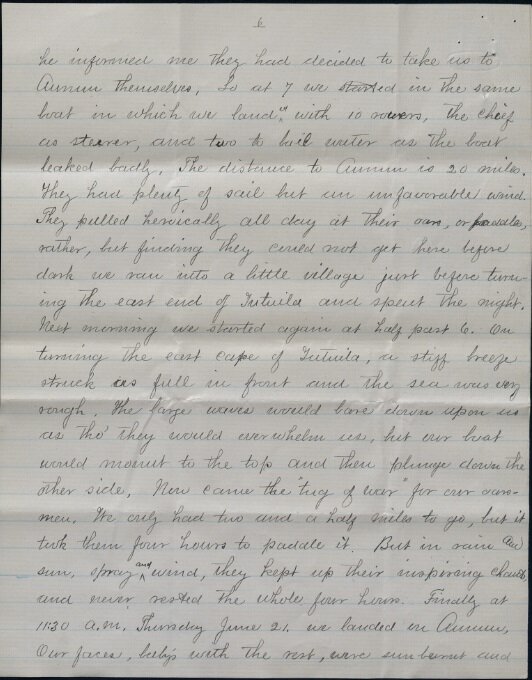 6
he informed me they had decided to take us to
Aunuu themselves. So at 7 we started in the same
boat in which we landed with 10 rowers, the chief
as steerer, and two to bail water as the boat
leaked badly. The distance to Aunuu is 20 miles.
They had plenty of sail but an unfavorable wind.
They pulled heroically all day at their oars, or paddles,
rather, but finding they could not get here before
dark we ran into a little village just before turn-
ing the east end of Tutuila and spent the night.
Next morning we started again at half past 6. On
turning the east cape of Tutuila, a stiff breeze
struck us full in front and the sea was very
rough. The large waves would bare down upon us
as tho' they would overwhelm us, but our boat
would mount to the top and then plunge down the
other side. Now came the "tug of war" for our oars-
men. We only had two and a half miles to go, but it
took them four hours to paddle it. But in rain and
sun, spray and wind, they kept up their inspiring chants,
and never rested the whole four hours. Finally at
11:30 a.m. Thursday June 21. we landed in Aunuu.
Our faces, baby's with the rest, were sunburnt and